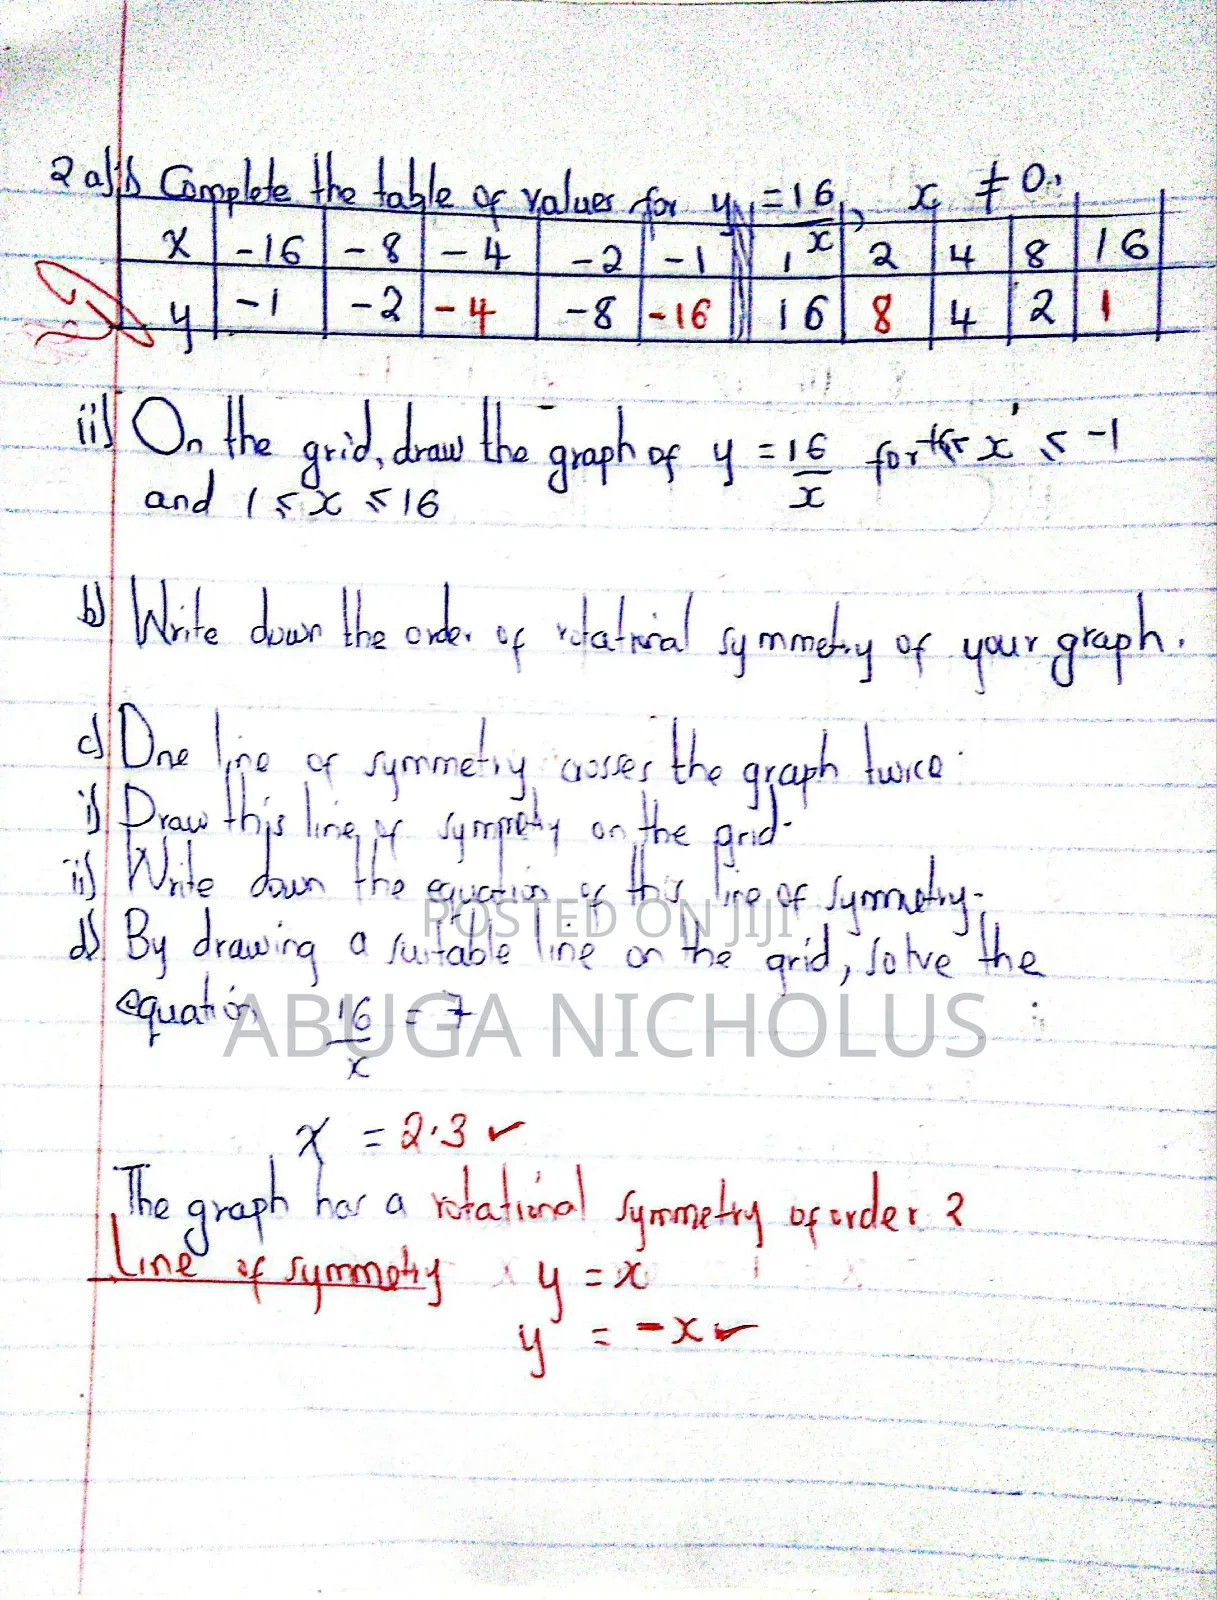 2 a) i) Complete the table of values for y = 16/x, x ≠ 0.
x -16 -8 -4 -2 -1 1 2 4 8 16
y -1 -2 -4 -8 -16 16 8 4 2 1
ii) On the grid, draw the graph of y = 16/x for -16 ≤ x ≤ -1
and 1 ≤ x ≤ 16
b) Write down the order of rotational symmetry of your graph.
c) One line of symmetry crosses the graph twice.
i) Draw this line of symmetry on the grid.
ii) Write down the equation of this line of symmetry.
POSTED ON JIJI
d) By drawing a suitable line on the grid, solve the
equation 16/x = 7
ABUGA NICHOLUS
x = 2.3 ✓
The graph has a rotational symmetry of order 2
Line of symmetry y = x
y = -x ✓